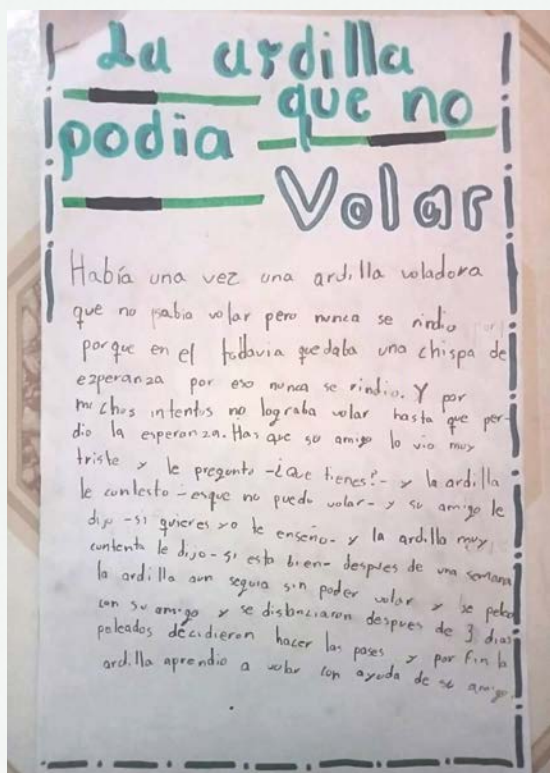 La ardilla
que no
podia
Volar
Había una vez una ardilla voladora
que no sabia volar pero nunca se rindio
porque en el todavia quedaba una chispa de
ezperanza por eso nunca se rindio. Y por
muchos intentos no lograba volar hasta que per-
dio la esperanza. Has que su amigo lo vio muy
triste y le pregunto -¿Que tienes?- y la ardilla
le contesto - esque no puedo volar- y su amigo le
dijo -si quieres yo te enseño- y la ardilla muy
contenta le dijo- si esta bien- despues de una semana
la ardilla aun seguia sin poder volar y se peleo
con su amigo y se distanciaron despues de 3 dias
peleados decidieron hacer las pases y por fin la
ardilla aprendio a volar con ayuda de su amigo.